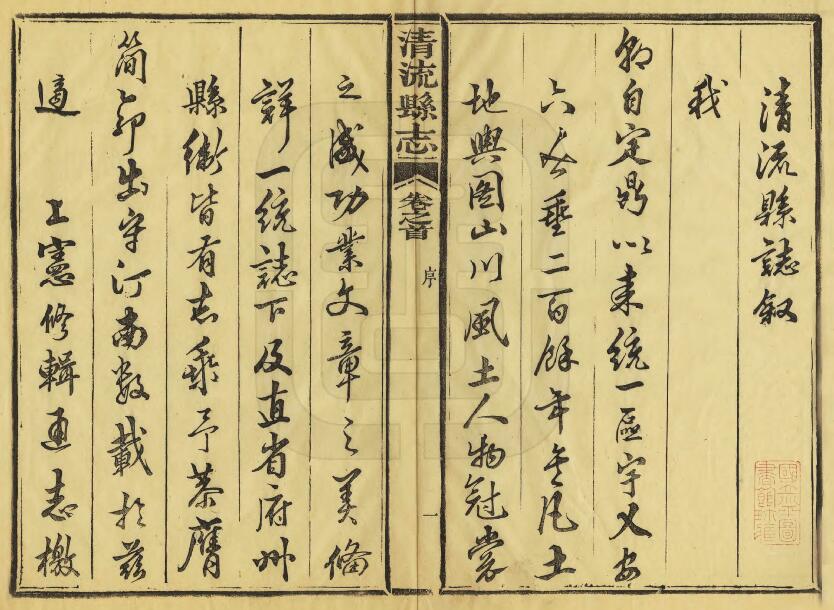 清流縣誌叙
我
朝自定鼎以來統一區宇乂安
六垂二百餘年凡土
地輿圖山川風土人物冠裳
清流縣志 卷之首 序 一
之盛功業文章之美備
詳一統誌下及直省府州
縣衛皆有志乘予恭膺
簡命出守汀南數載於茲
適 上憲修輯通志檄